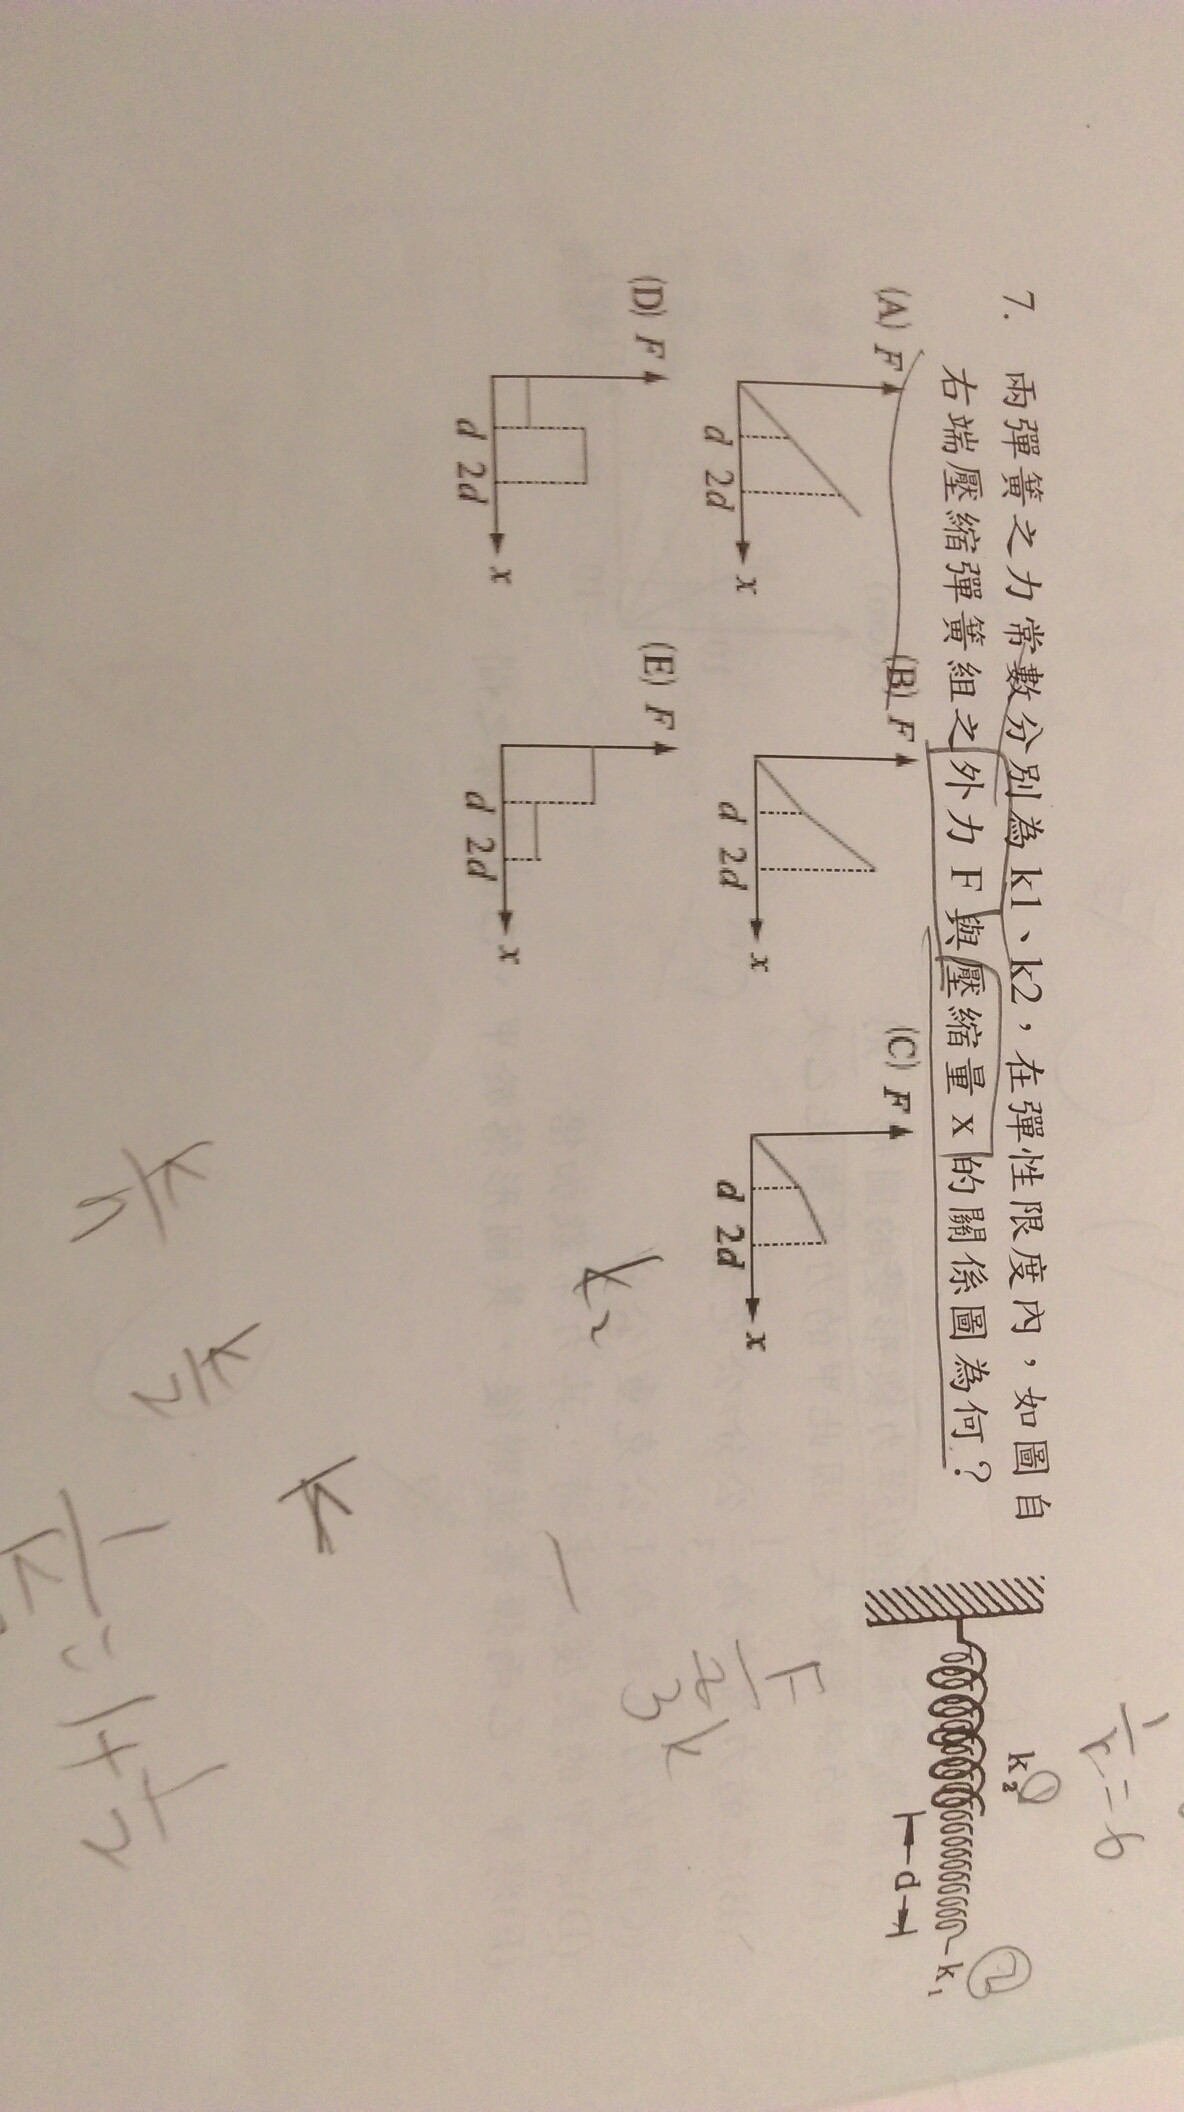 7. 兩彈簧之力常數分別為k1、k2，在彈性限度內，如圖自
右端壓縮彈簧組之外力F與壓縮量x的關係圖為何？
(A) F
d 2d x
(B) F
d 2d x
(C) F
d 2d x
(D) F
d 2d x
(E) F
d 2d x
k₂
d
k₁
2
k2
K